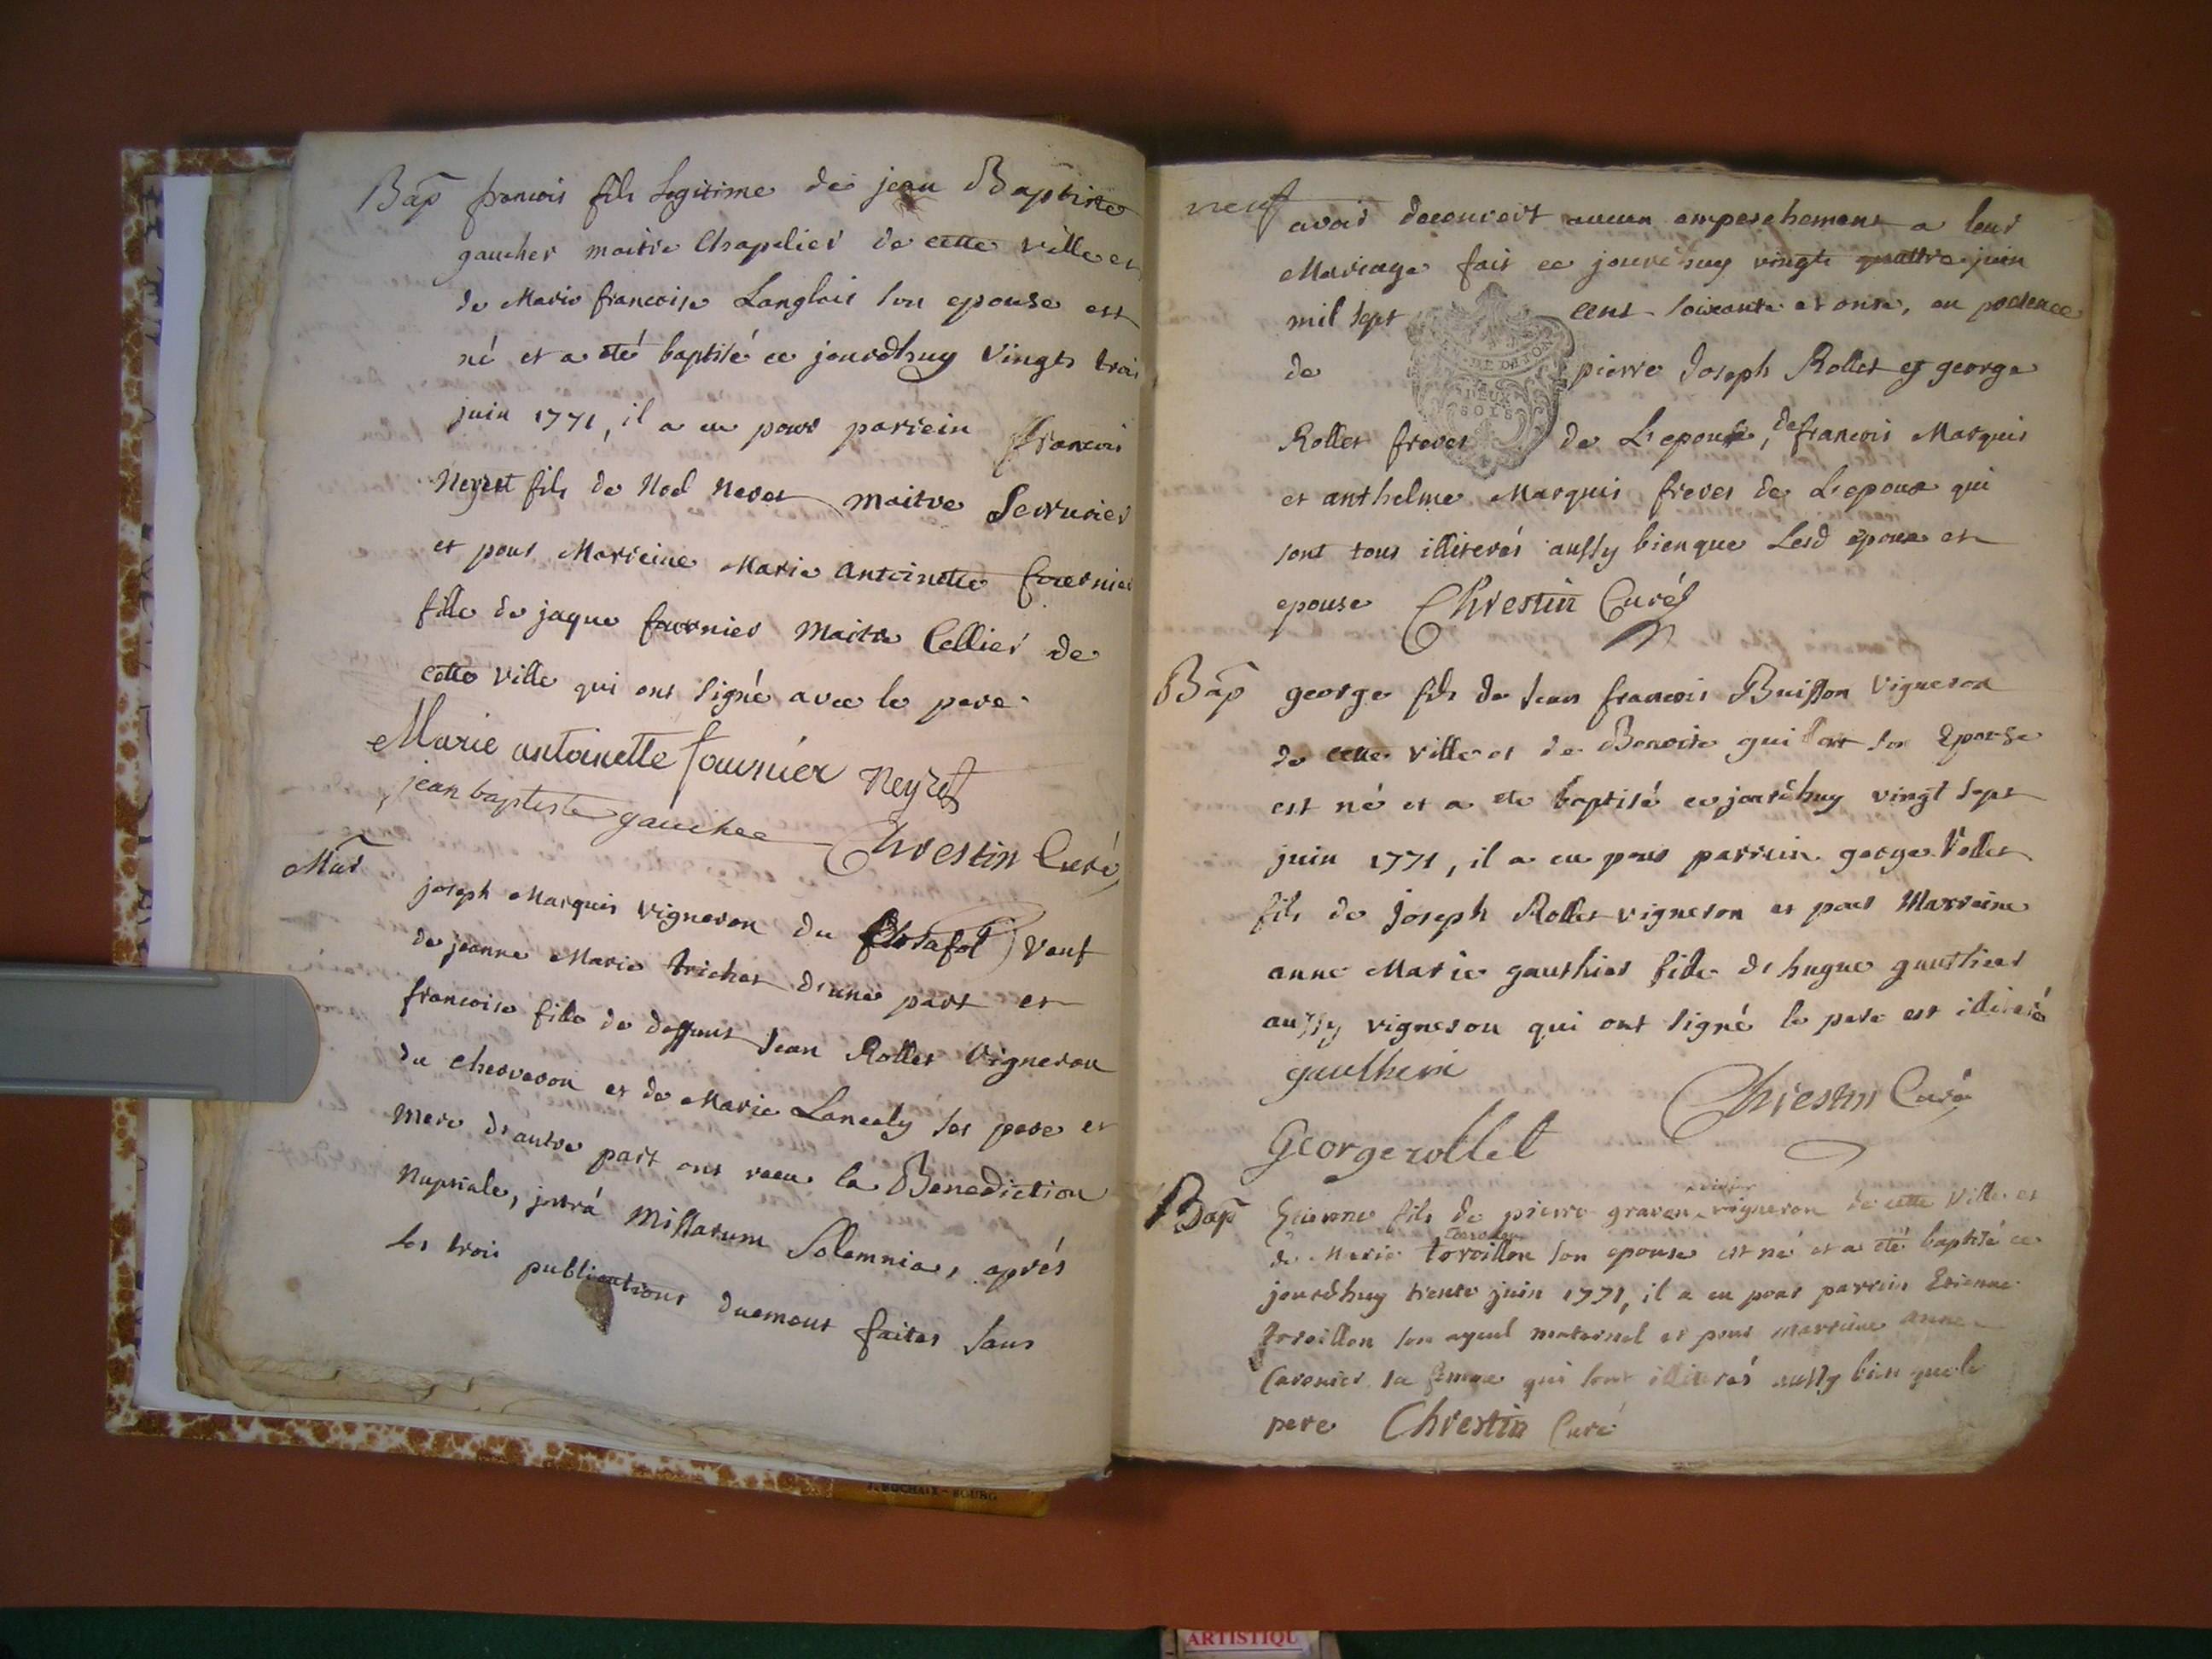 Bap francois fils legitime de jean Baptiste
gaucher maitre Chapelier de cette ville et
de Marie francoise Langlois son epouse est
né et a eté baptisé ce jourdhuy vingts trois
juin 1771, il a eu pour parrein francois
Neyret fils de Noel Neret maitre Serrurier
et pour Marreine Marie antoinette fournier
fille de jaque fournier Maitre Cellier de
cette ville qui ont signé avec le pere
Marie antoinette fournier Neyret
jean baptiste gauchee Chrestin Curé
Mar
joseph Marquis vigneron du veuf
de jeanne Marie trichet d'une part et
francoise fille de deffunt Jean Rollet Vigneron
du cherveron et de Marie Lancely ses pere et
mere d'autre part ont receu la Benediction
Nuptiale, jntrá Missarum Solemnia, aprés
les trois publications duement faites sans
neuf
avoir decouvert aucun empeschement a leur
Mariage fait ce jourdhuy vingts quattre juin
mil sept cent soixante et onze, en presence
de pierre Joseph Rollet et george
Rollet freres de L'epouse, de francois Marquis
et anthelme Marquis freres de L'epoux qui
sont tous illiterés aussy bien que Lesd epoux et
epouse Chrestin Curé
DEUX
SOLS
Bap george fils de Jean francois Buisson Vigneron
de cette ville et de Benoite son Epouse
est né et a ete baptisé ce jourdhuy vingt sept
juin 1771, il a eu pour parrein george Rollet
fils de Joseph Rollet vigneron et pour Marreine
anne Marie gauthier fille de hugue gauthier
aussy vigneron qui ont signé le pere est illiteré
gautheire
Chrestin Curé
George rollet
Bap Etienne fils de pierre vigneron de cette Ville et
de Marie torvillon son epouse est né et a eté baptisé ce
jourdhuy trente juin 1771, il a eu pour parrein Etienne
torvillon son ayeul maternel et pour marreine anne
Cavenier sa femme qui sont illiterés aussy bien que le
pere Chrestin Curé
J. ROCHAIX - BOURG
ARTISTIQU